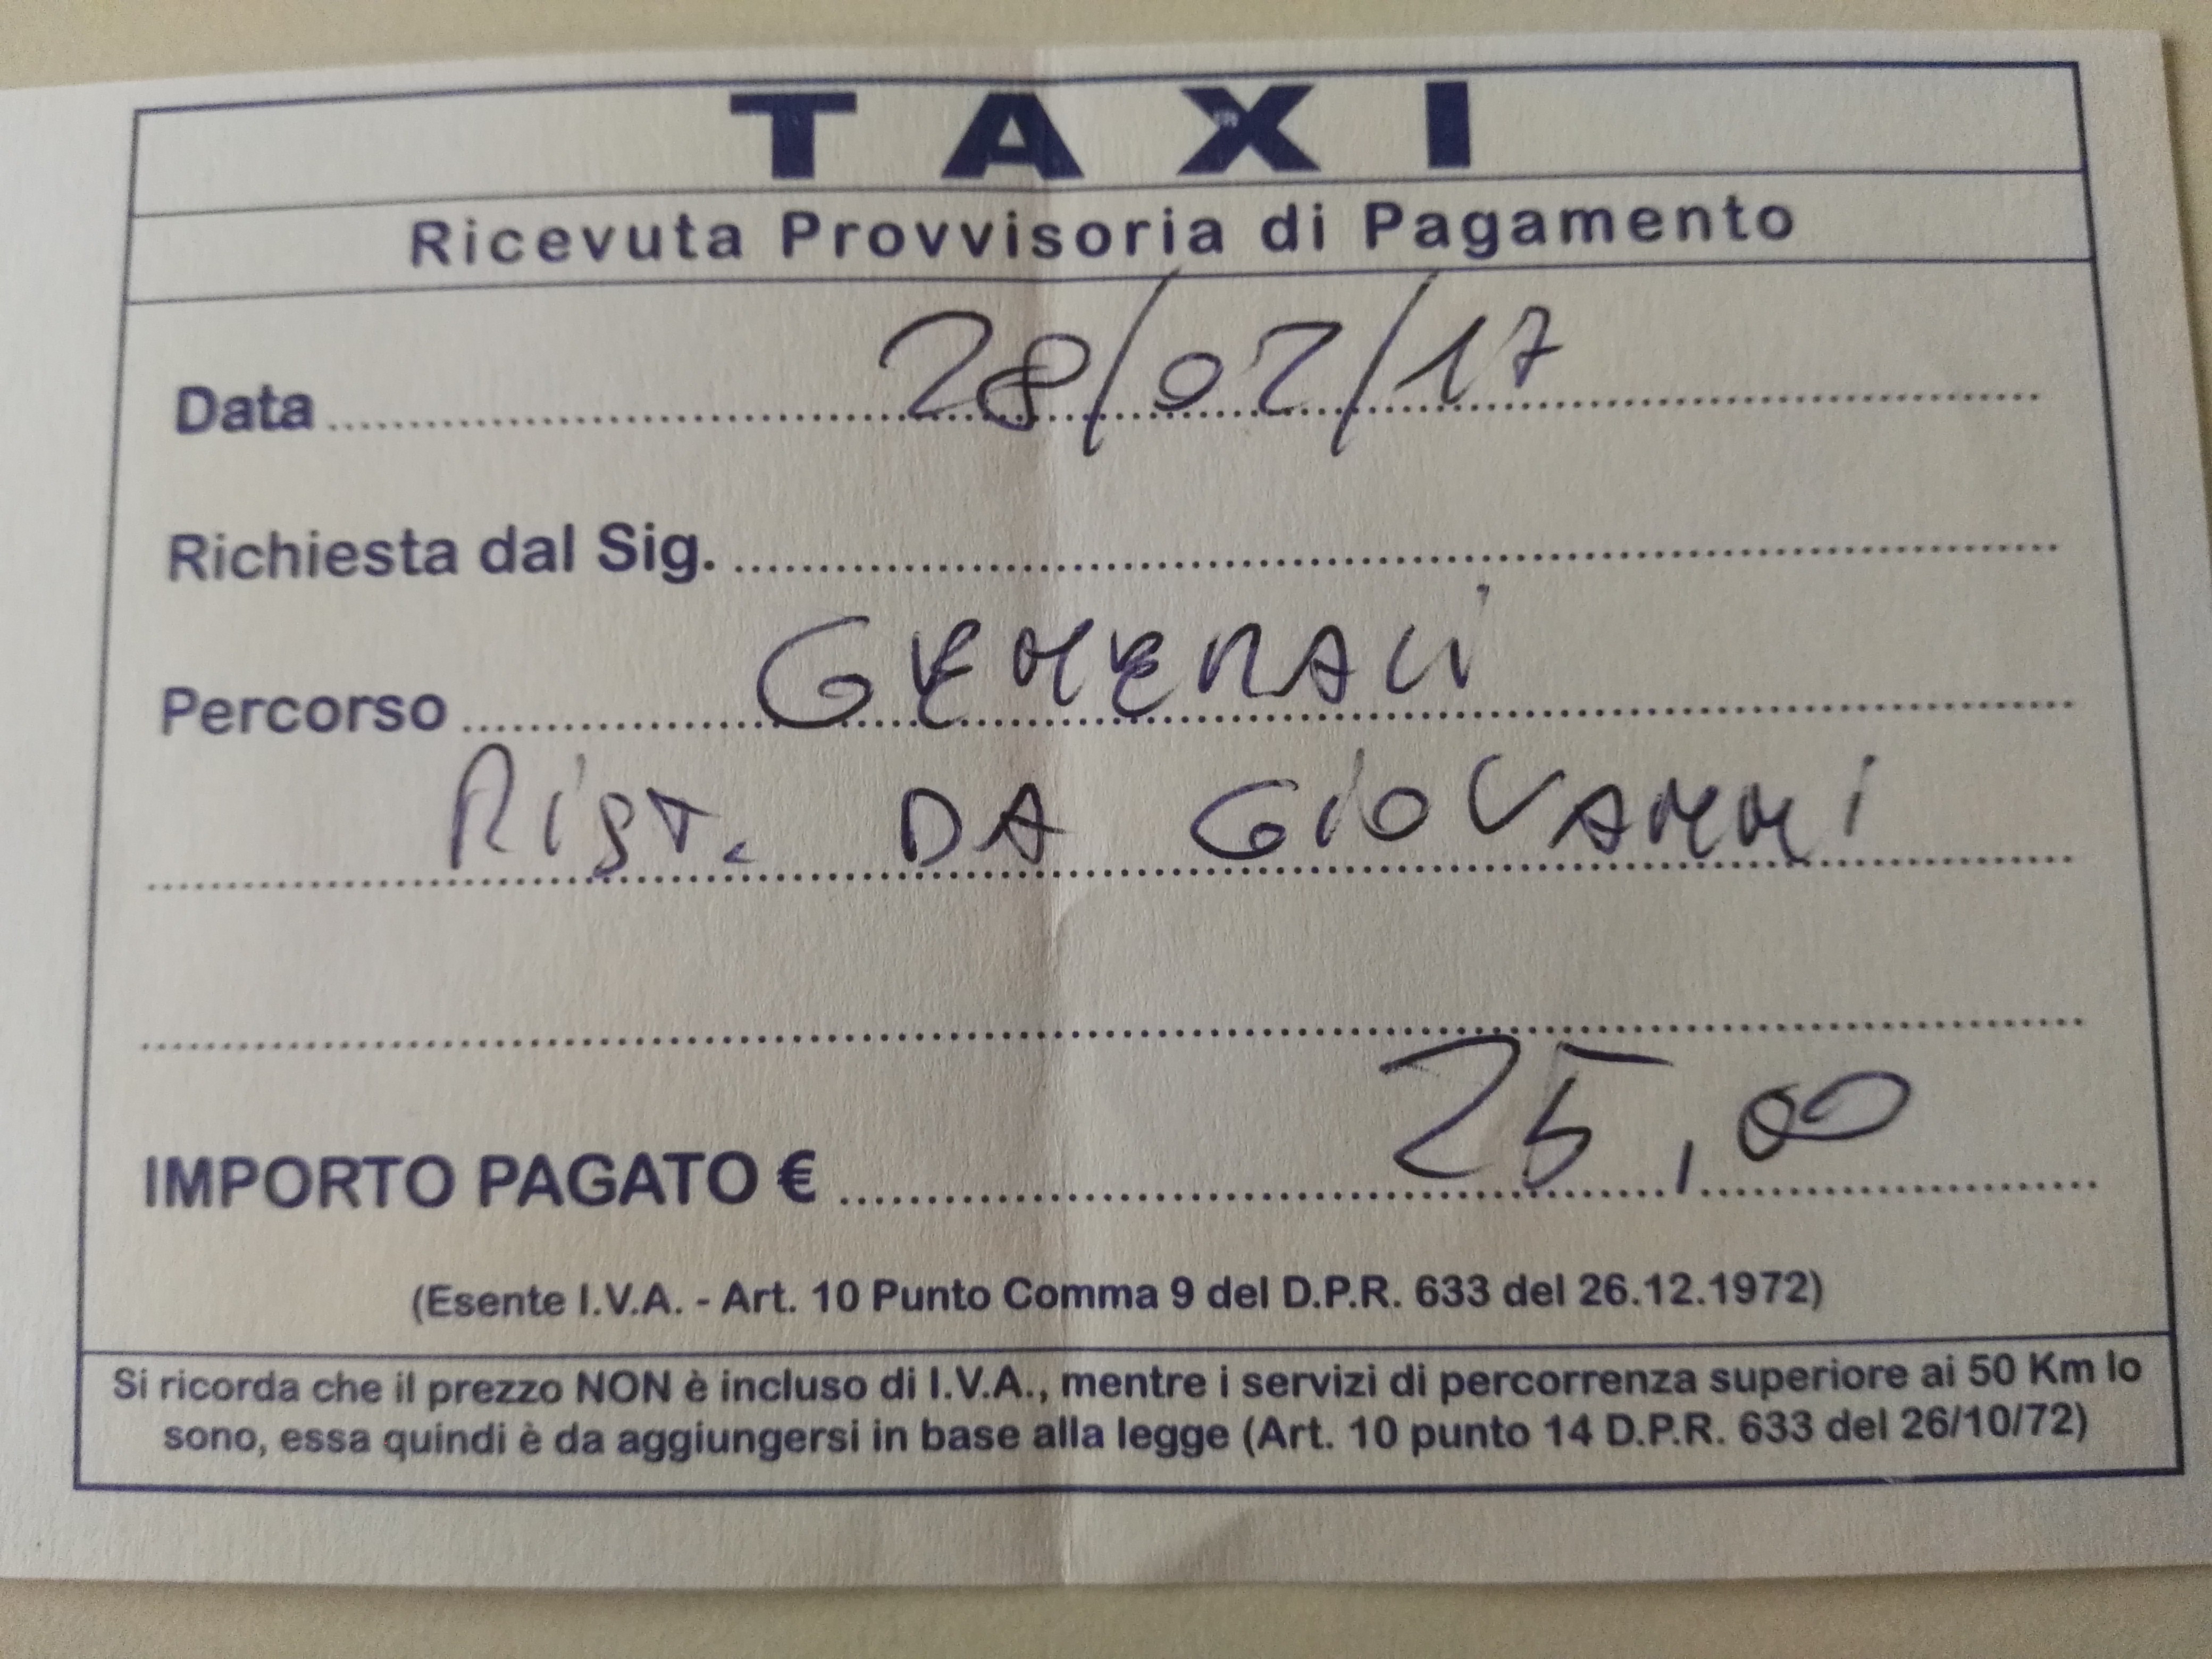 TAXI
Ricevuta Provvisoria di Pagamento
Data 28/02/17
Richiesta dal Sig.
Percorso GENERALI
RIST. DA GIOVANNI
IMPORTO PAGATO € 25,00
(Esente I.V.A. - Art. 10 Punto Comma 9 del D.P.R. 633 del 26.12.1972)
Si ricorda che il prezzo NON è incluso di I.V.A., mentre i servizi di percorrenza superiore ai 50 Km lo
sono, essa quindi è da aggiungersi in base alla legge (Art. 10 punto 14 D.P.R. 633 del 26/10/72)